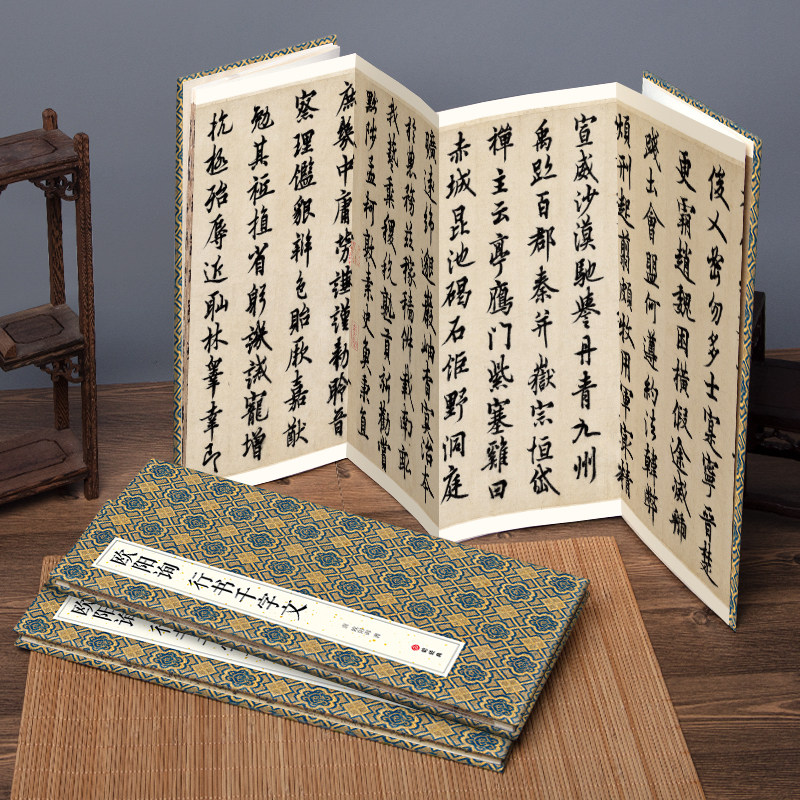 俊乂密勿多士寔寧晉楚
更霸趙魏困橫假途滅虢
踐土會盟何遵約法韓弊
煩刑起翦頗牧用軍最精
宣威沙漠馳譽丹青九州
禹跡百郡秦并嶽宗恒岱
禪主云亭鴈門紫塞雞田
赤城昆池碣石鉅野洞庭
曠遠綿邈巖岫杳冥治本
於農務茲稼穡俶載南畝
我藝黍稷稅熟貢新勸賞
黜陟孟軻敦素史魚秉直
庶幾中庸勞謙謹勑聆音
察理鑑貌辨色貽厥嘉猷
勉其祗植省躬譏誡寵增
抗極殆辱近恥林皋幸即
欧阳询 行书千字文
欧阳询